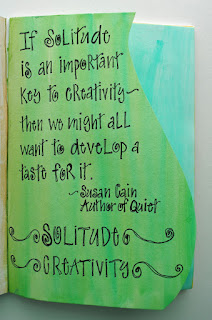 If Solitude
is an important
key to creativity~
then we might all
want to develop a
taste for it.
~Susan Cain
Author of Quiet
SOLITUDE
CREATIVITY